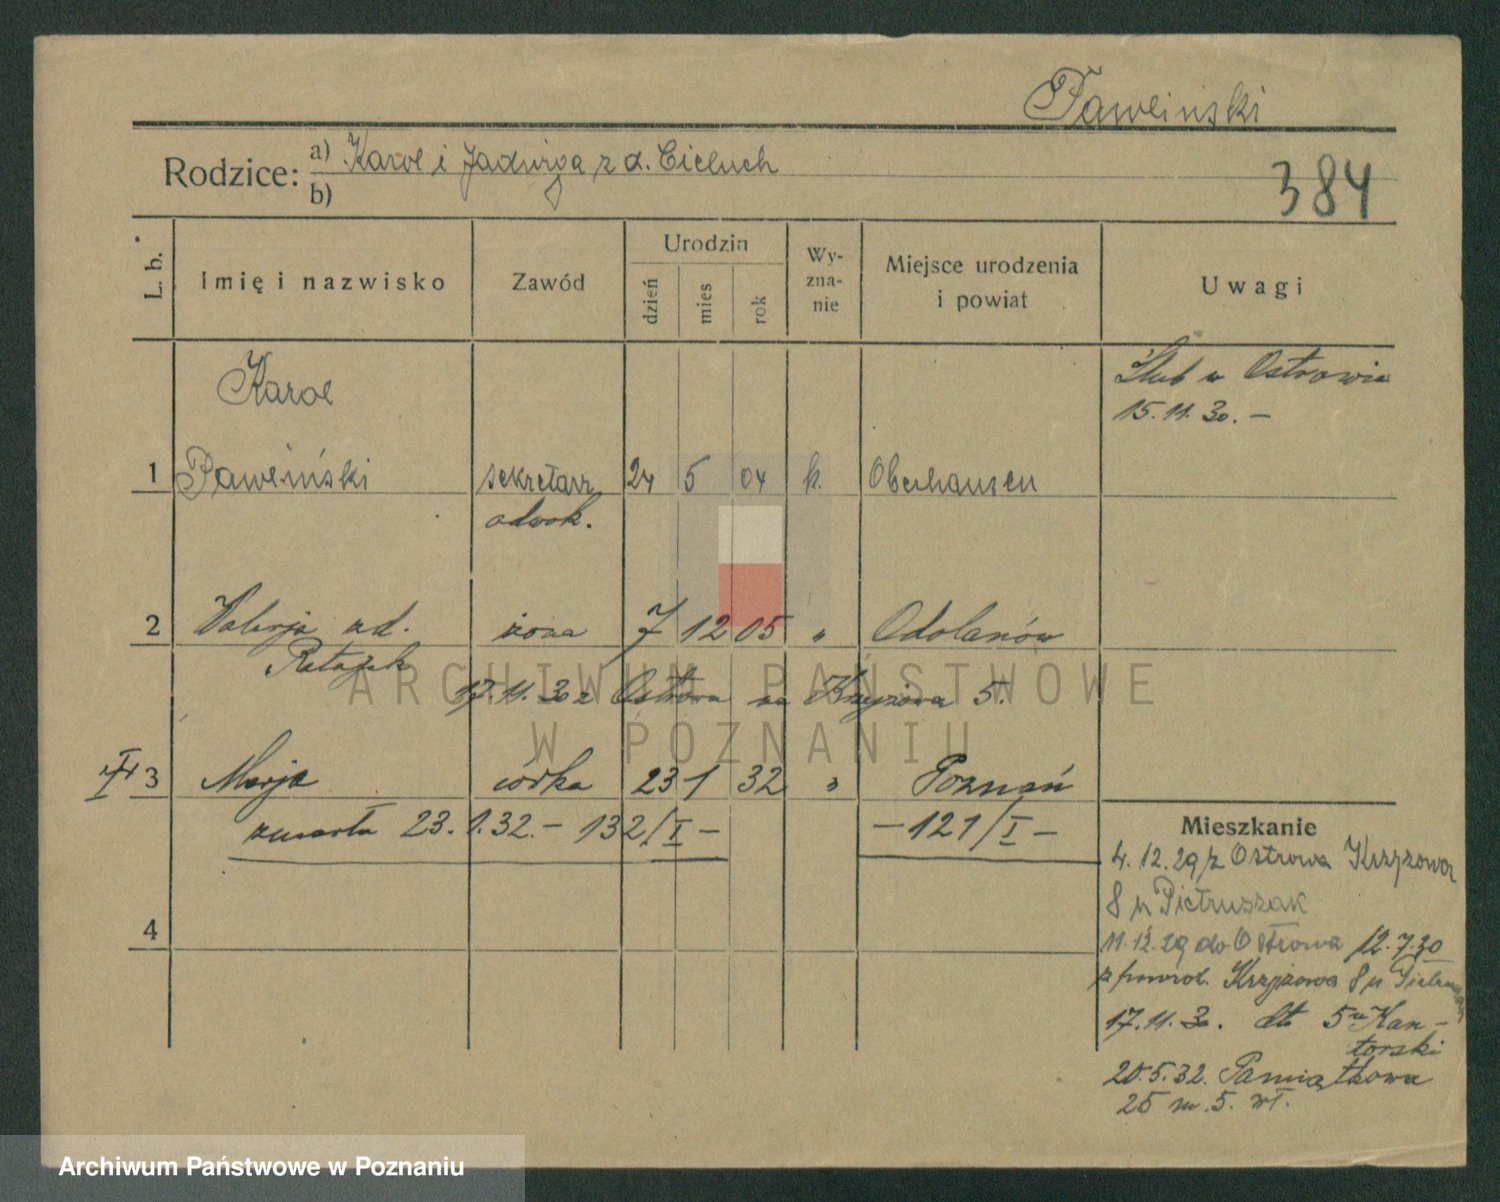 Paweiński
Rodzice: a) Karol i Jadwiga z d. Cieluch
b)
384
L. b. Imię i nazwisko Zawód Urodzin dzień mies rok Wy-zna-nie Miejsce urodzenia i powiat Uwagi
Karol
Ślub w Ostrowie
15.11.30. –
1 Paweiński sekretarz 24 5 04 k. Oberhausen
adwok.
2 Walerja zd. żona 7 12 05 " Odolanów
Ratajzak
17.11.30 z Ostrowa na Krzyżowa 5.
3 Marja córka 23 1 32 " Poznań
zmarła 23.1.32. – 132/I – – 121/I –
4
Mieszkanie
4.12.29 z Ostrowa Krzyżowa
8 u Pietruszak
11.12.29 do Ostrowa 12.7.30
z powrot. Krzyżowa 8 u Pietruszak
17.11.30. dto 5 u Kan-
torski
20.5.32. Pamiątkowa
25 m. 5. wł.
ARCHIWUM PAŃSTWOWE
W POZNANIU
Archiwum Państwowe w Poznaniu